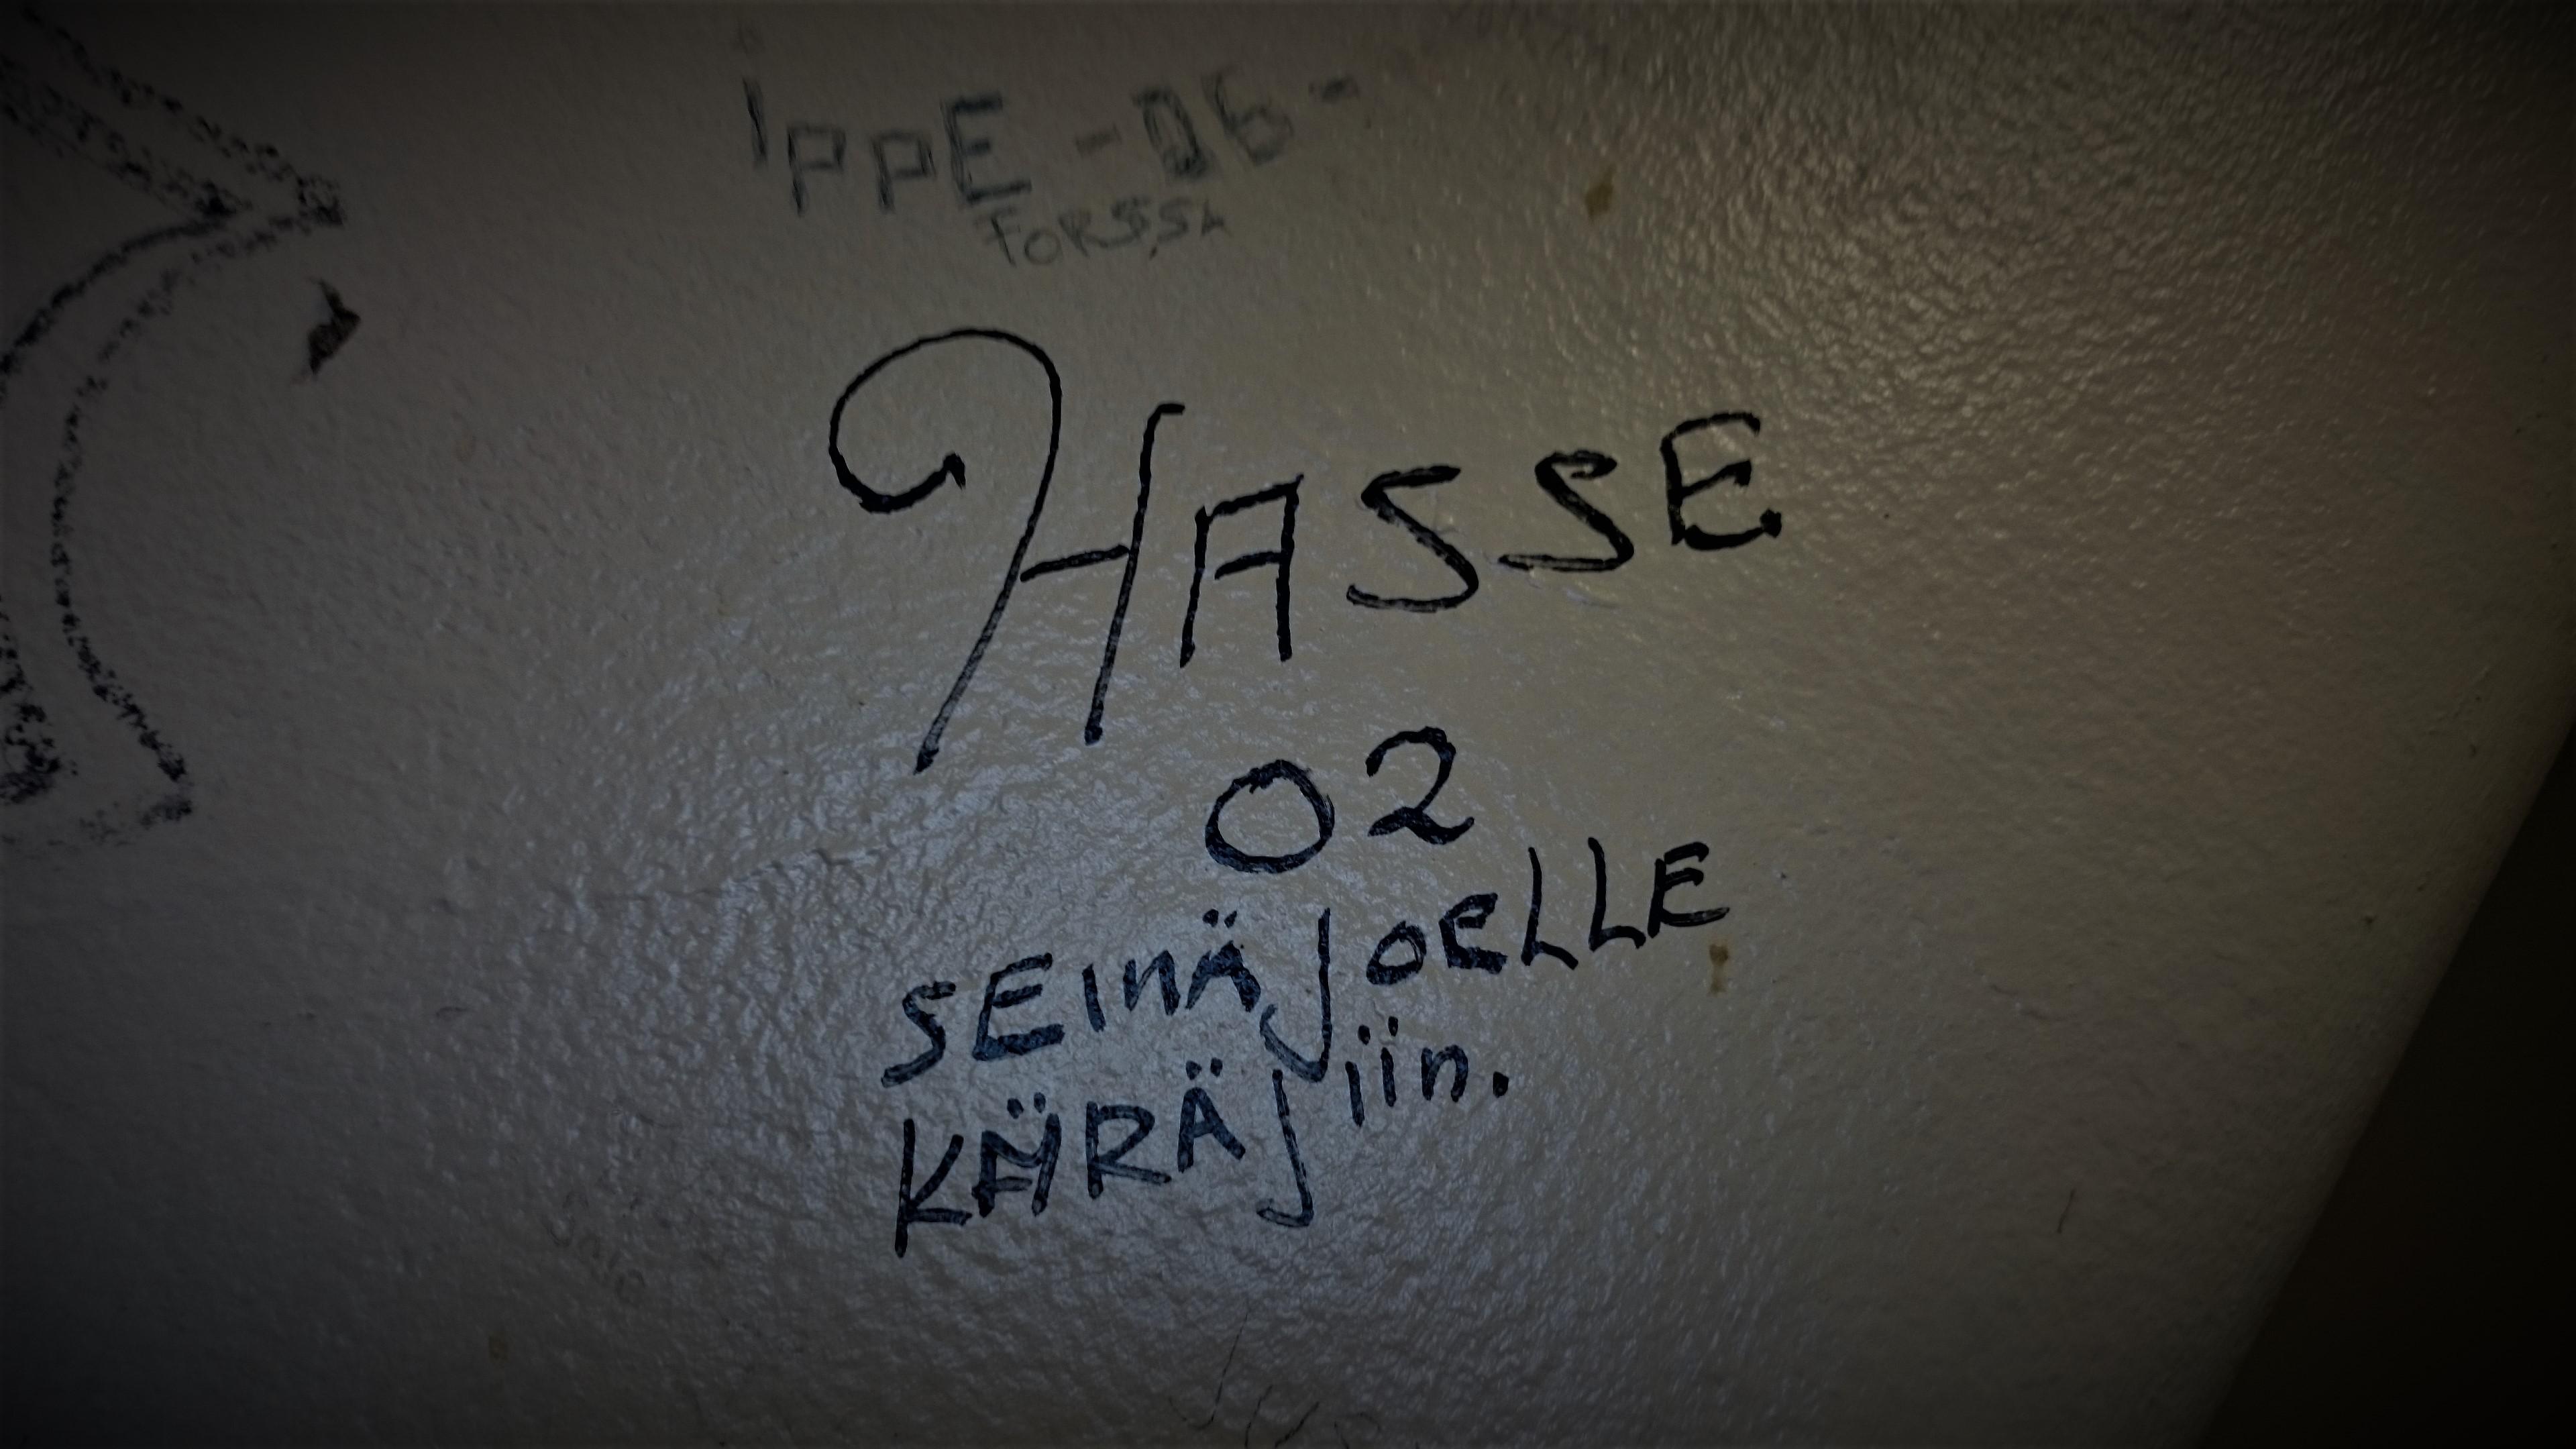 IPPE -06-
FORSSA
HASSE
02
SEINÄJOELLE
KÄRÄJiin.